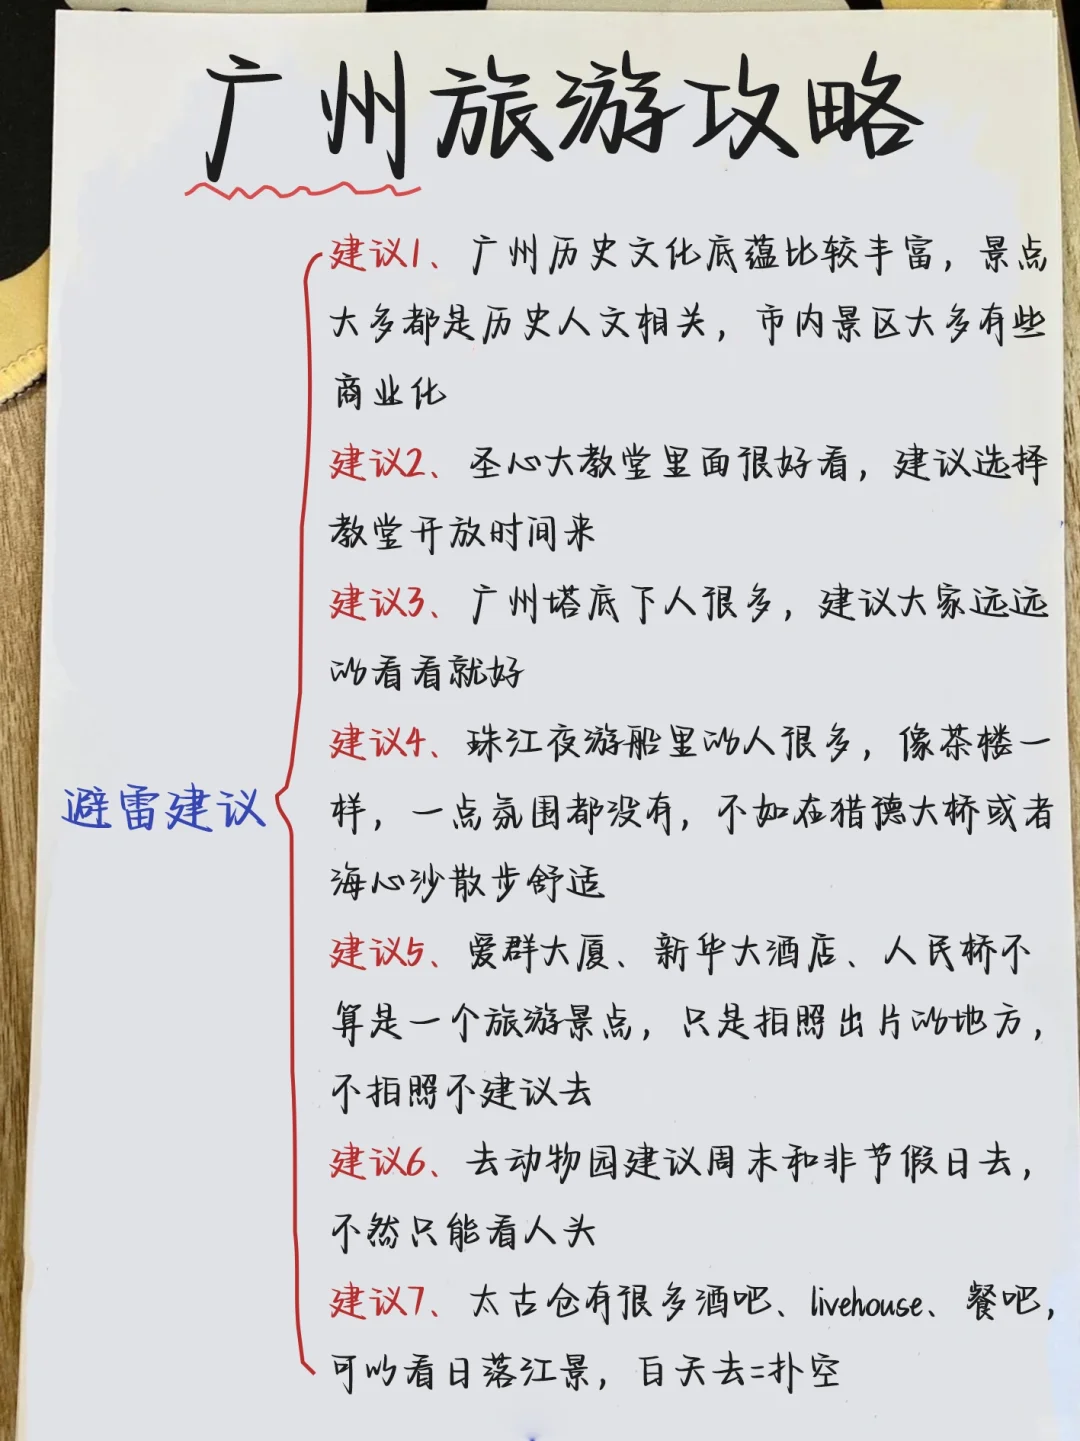 广州旅游攻略
避雷建议
建议1、广州历史文化底蕴比较丰富，景点
大多都是历史人文相关，市内景区大多有些
商业化
建议2、圣心大教堂里面很好看，建议选择
教堂开放时间来
建议3、广州塔底下人很多，建议大家远远
的看看就好
建议4、珠江夜游船里的人很多，像茶楼一
样，一点氛围都没有，不如在猎德大桥或者
海心沙散步舒适
建议5、爱群大厦、新华大酒店、人民桥不
算是一个旅游景点，只是拍照出片的地方，
不拍照不建议去
建议6、去动物园建议周末和非节假日去，
不然只能看人头
建议7、太古仓有很多酒吧、livehouse、餐吧，
可以看日落江景，白天去=扑空